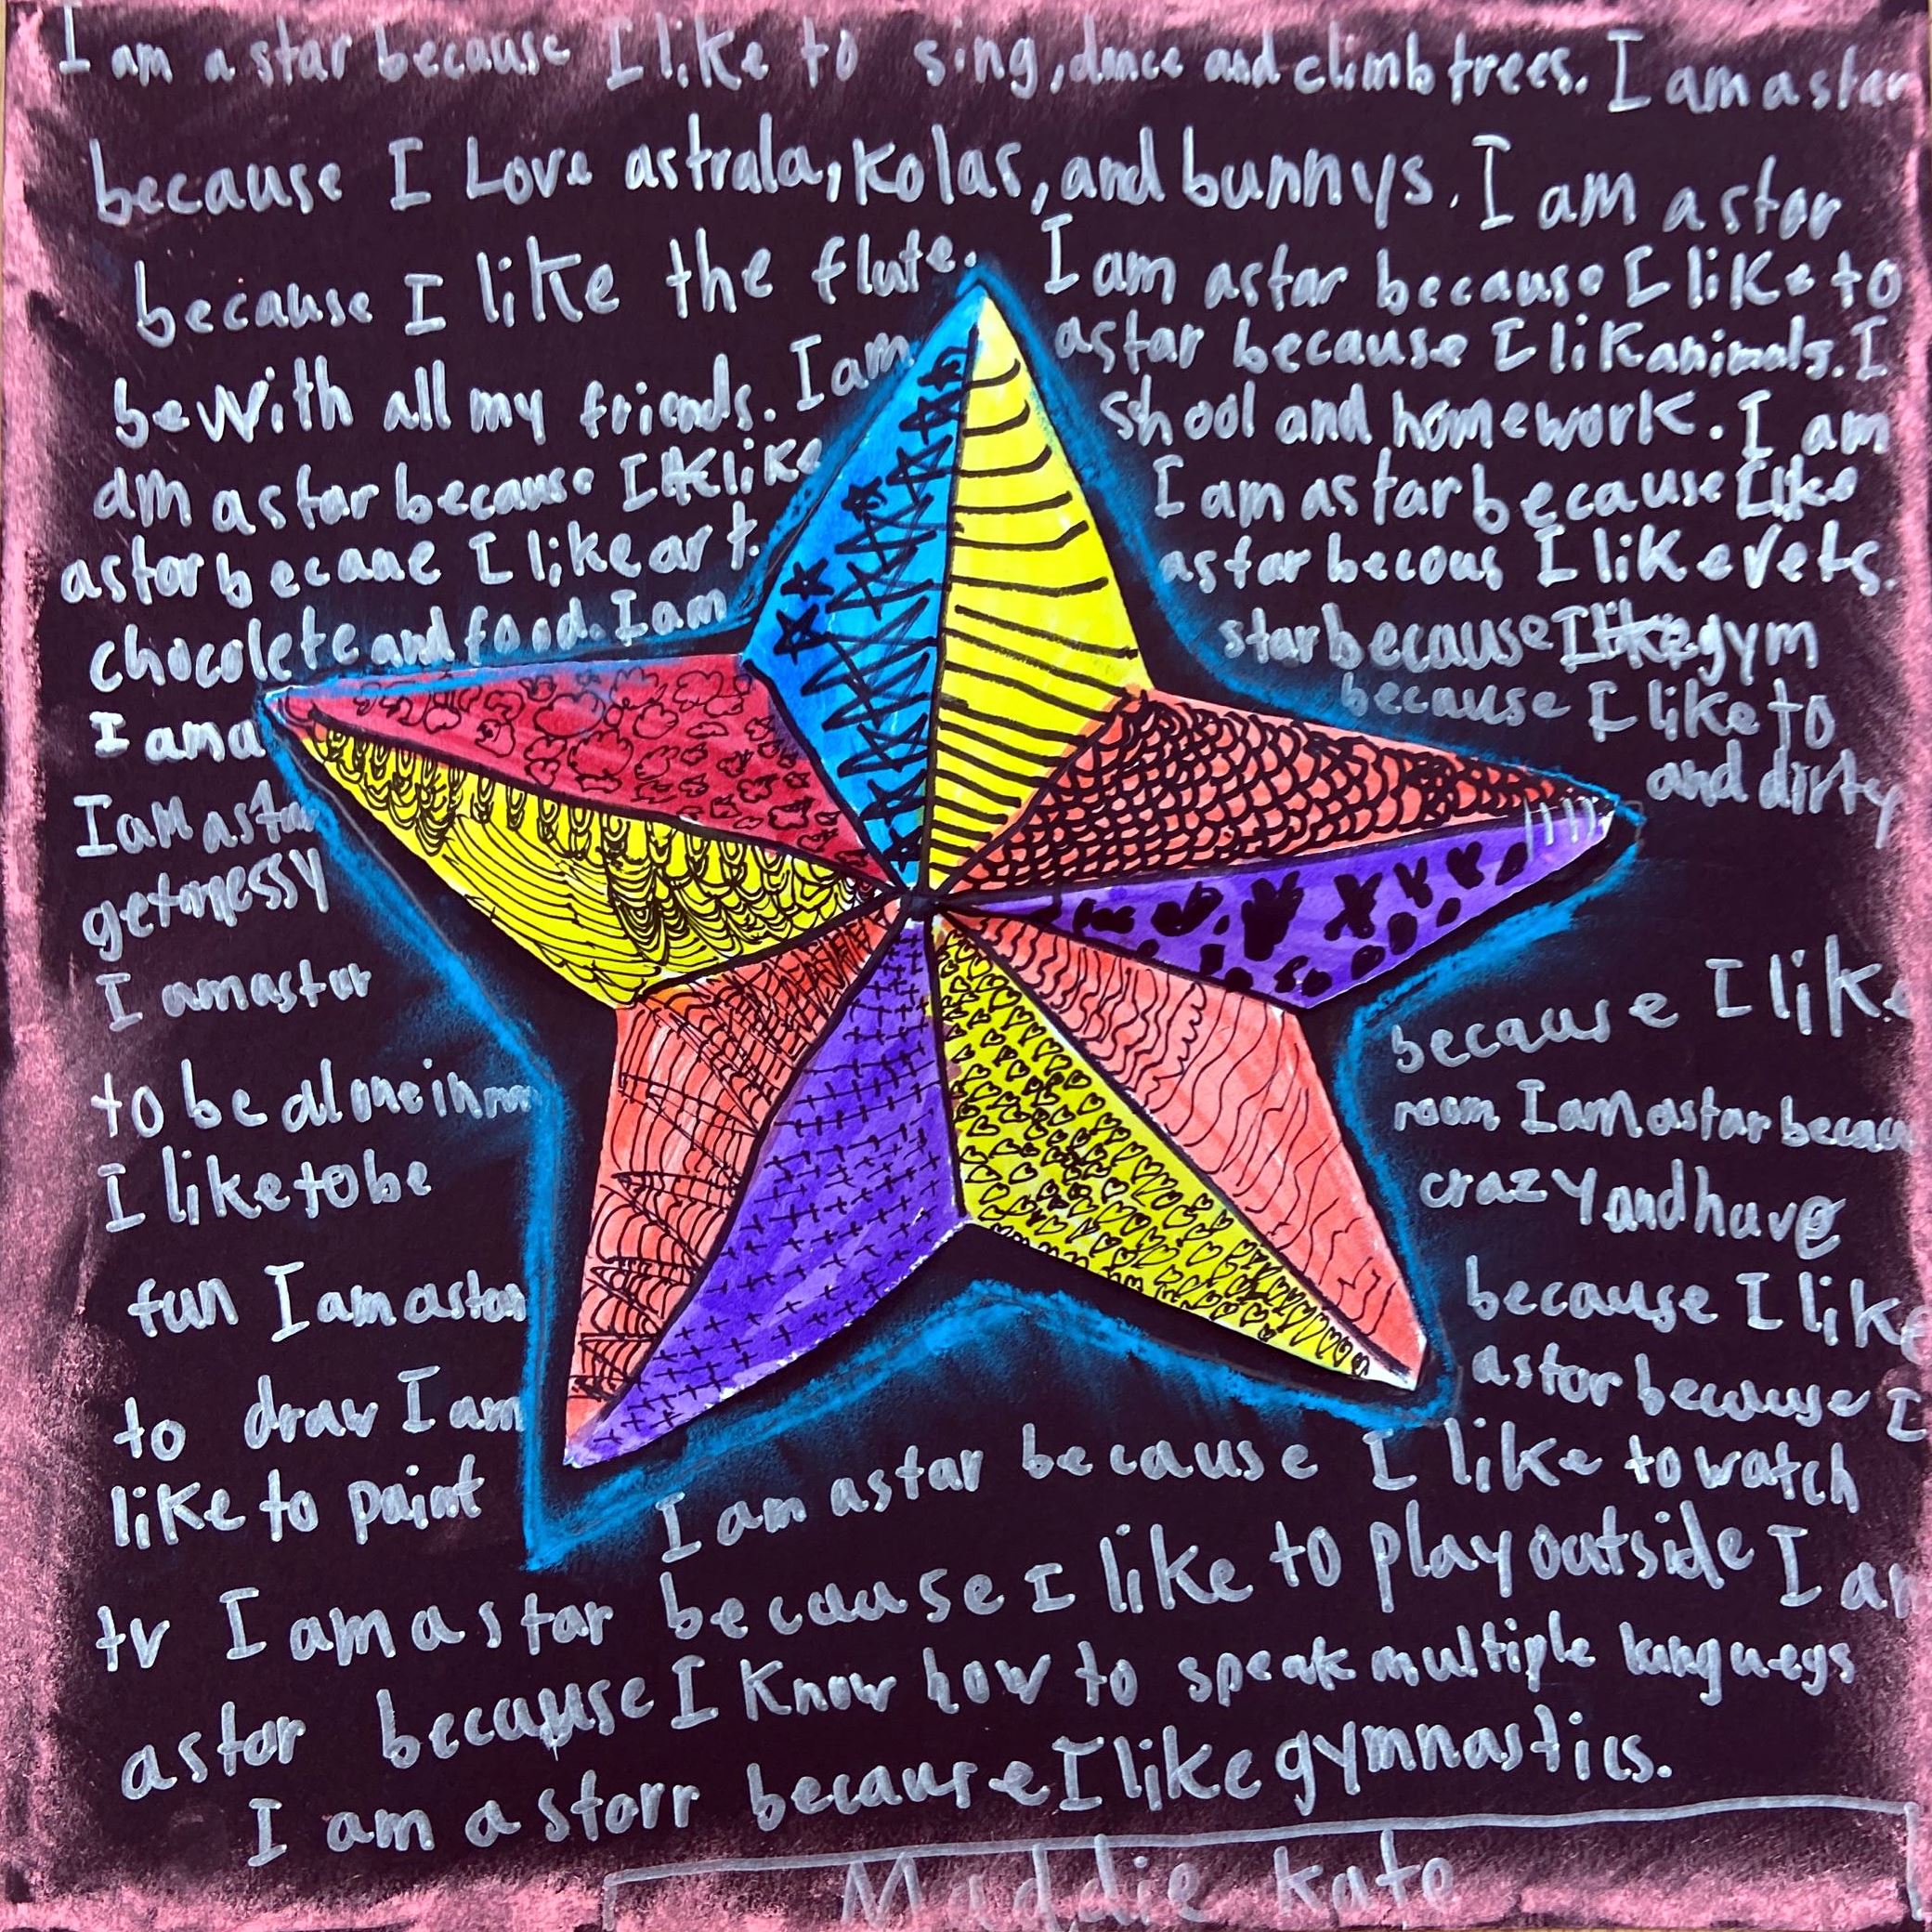 I am a star because I like to sing, dance and climb trees. I am a star
because I Love astrala, kolas, and bunnys. I am a star
because I like the flute. I am astar because I like to
be With all my friends. I am astar because I lik animals. I
am astar because I like shool and homework. I am
astar becaue I like art. I am astar because I like
chocolete and food. I am astar becous I like vets.
I am a star because I like gym
I am astar because I like to
get messy and dirty
I am astar because I like
to be alone in room I am astar because
I like to be crazy and have
fun I am astar because I like
to draw I am astar because I
like to paint I am astar because I like to watch
tv I am a star because I like to play outside I am
astar because I Know how to speak multiple langueys
I am a storr because I like gymnastics.
Maddie kate